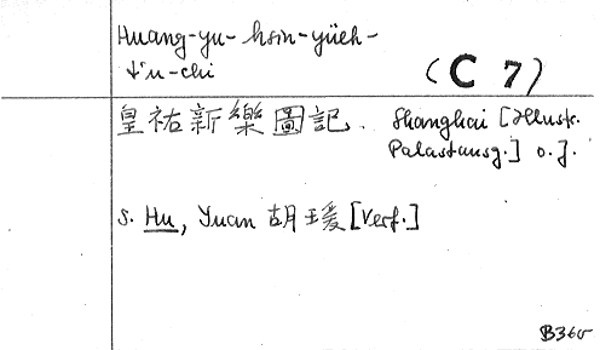 Huang-yu-hsin-yüeh-
t'u-chi
(C 7)
皇祐新樂圖記. Shanghai [Illustr.
Palastausg.] o.J.
s. Hu, Yuan 胡瑗 [Verf.]
B360